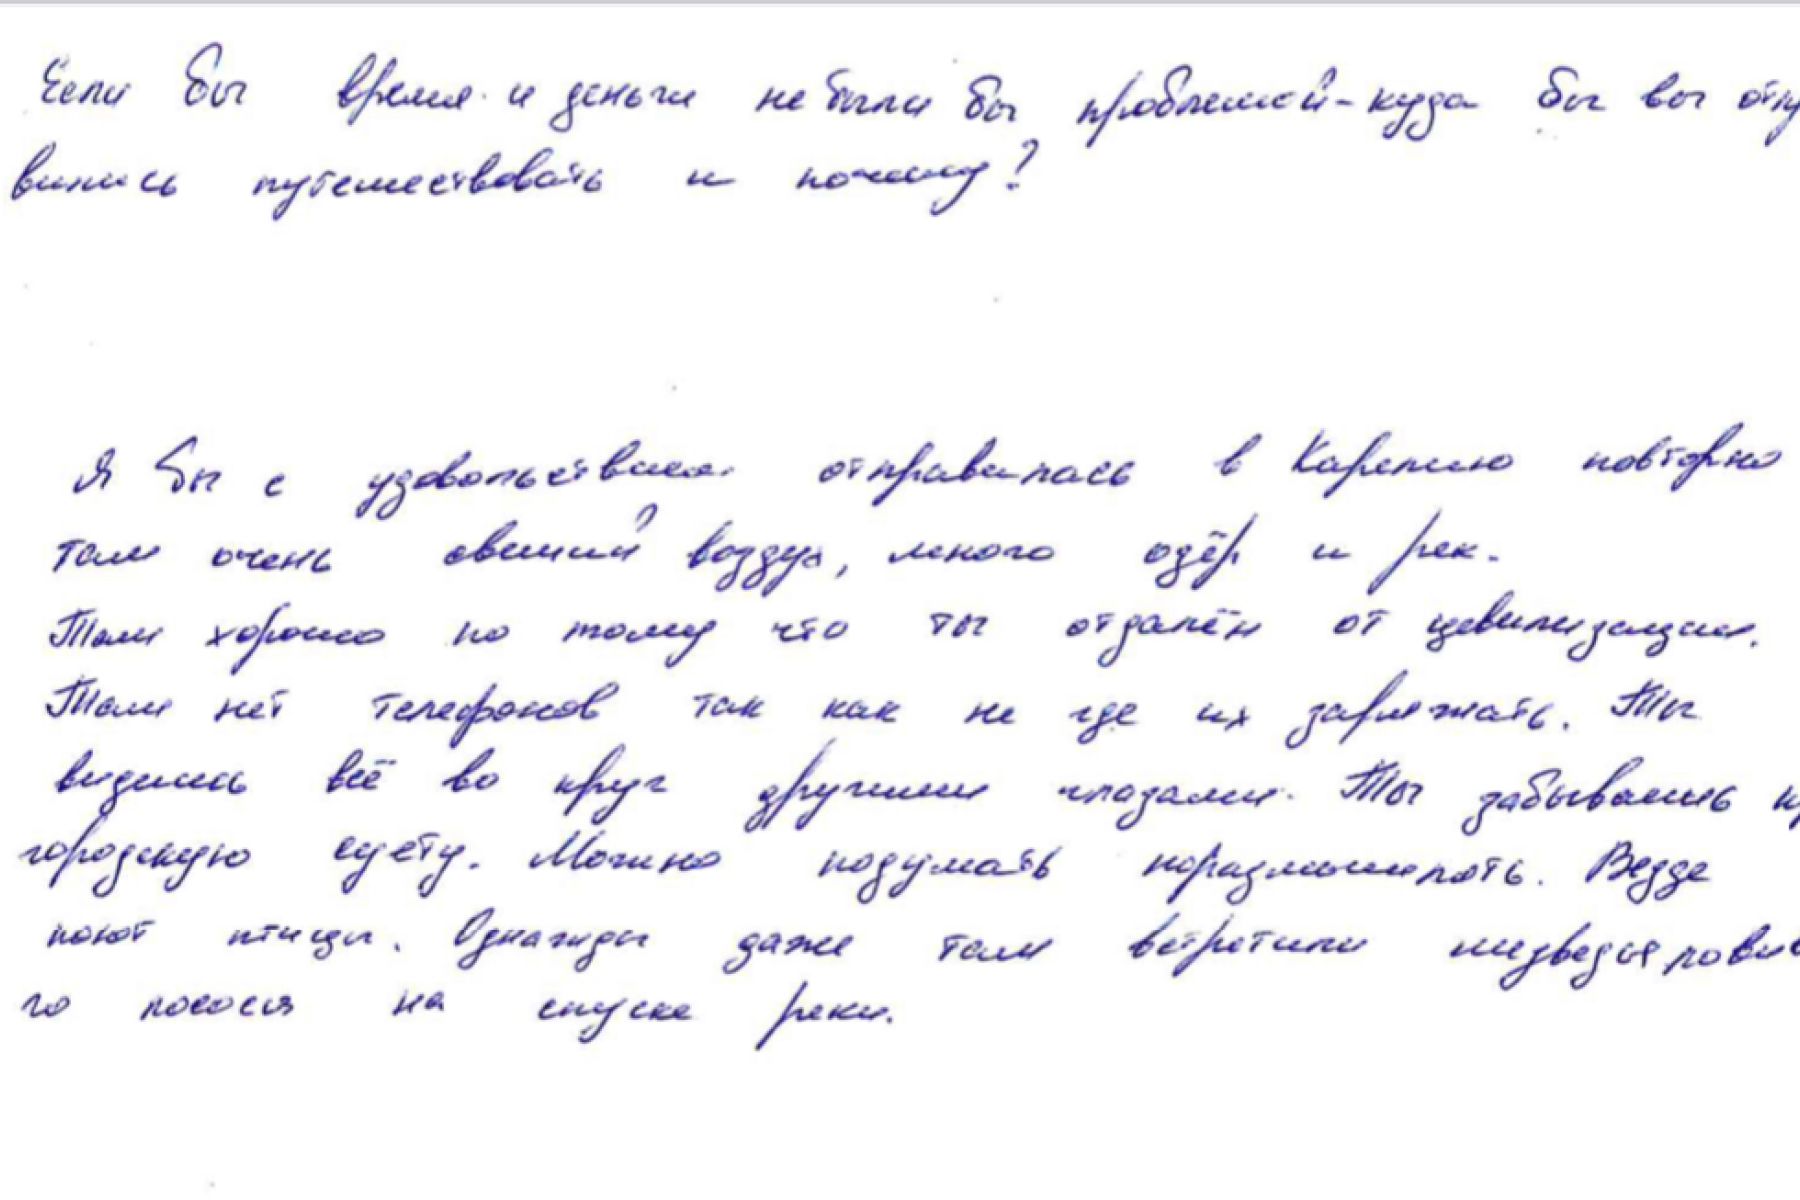 Если бы время и деньги не были бы проблемой - куда бы вы отпр
вились путешествовать и почему?
Я бы с удовольствием отправилась в Карелию повторно
там очень свежий воздух, много озёр и рек.
Там хорошо по тому что ты отдалён от цевилизации.
Там нет телефонов так как не где их заряжать. Ты
видишь всё во круг другими глазами. Ты забываешь
городскую суету. Можно подумать поразмышлять. Везде
поют птицы. Однажды даже там встретили медведя лови
го лосося на спуске реки.